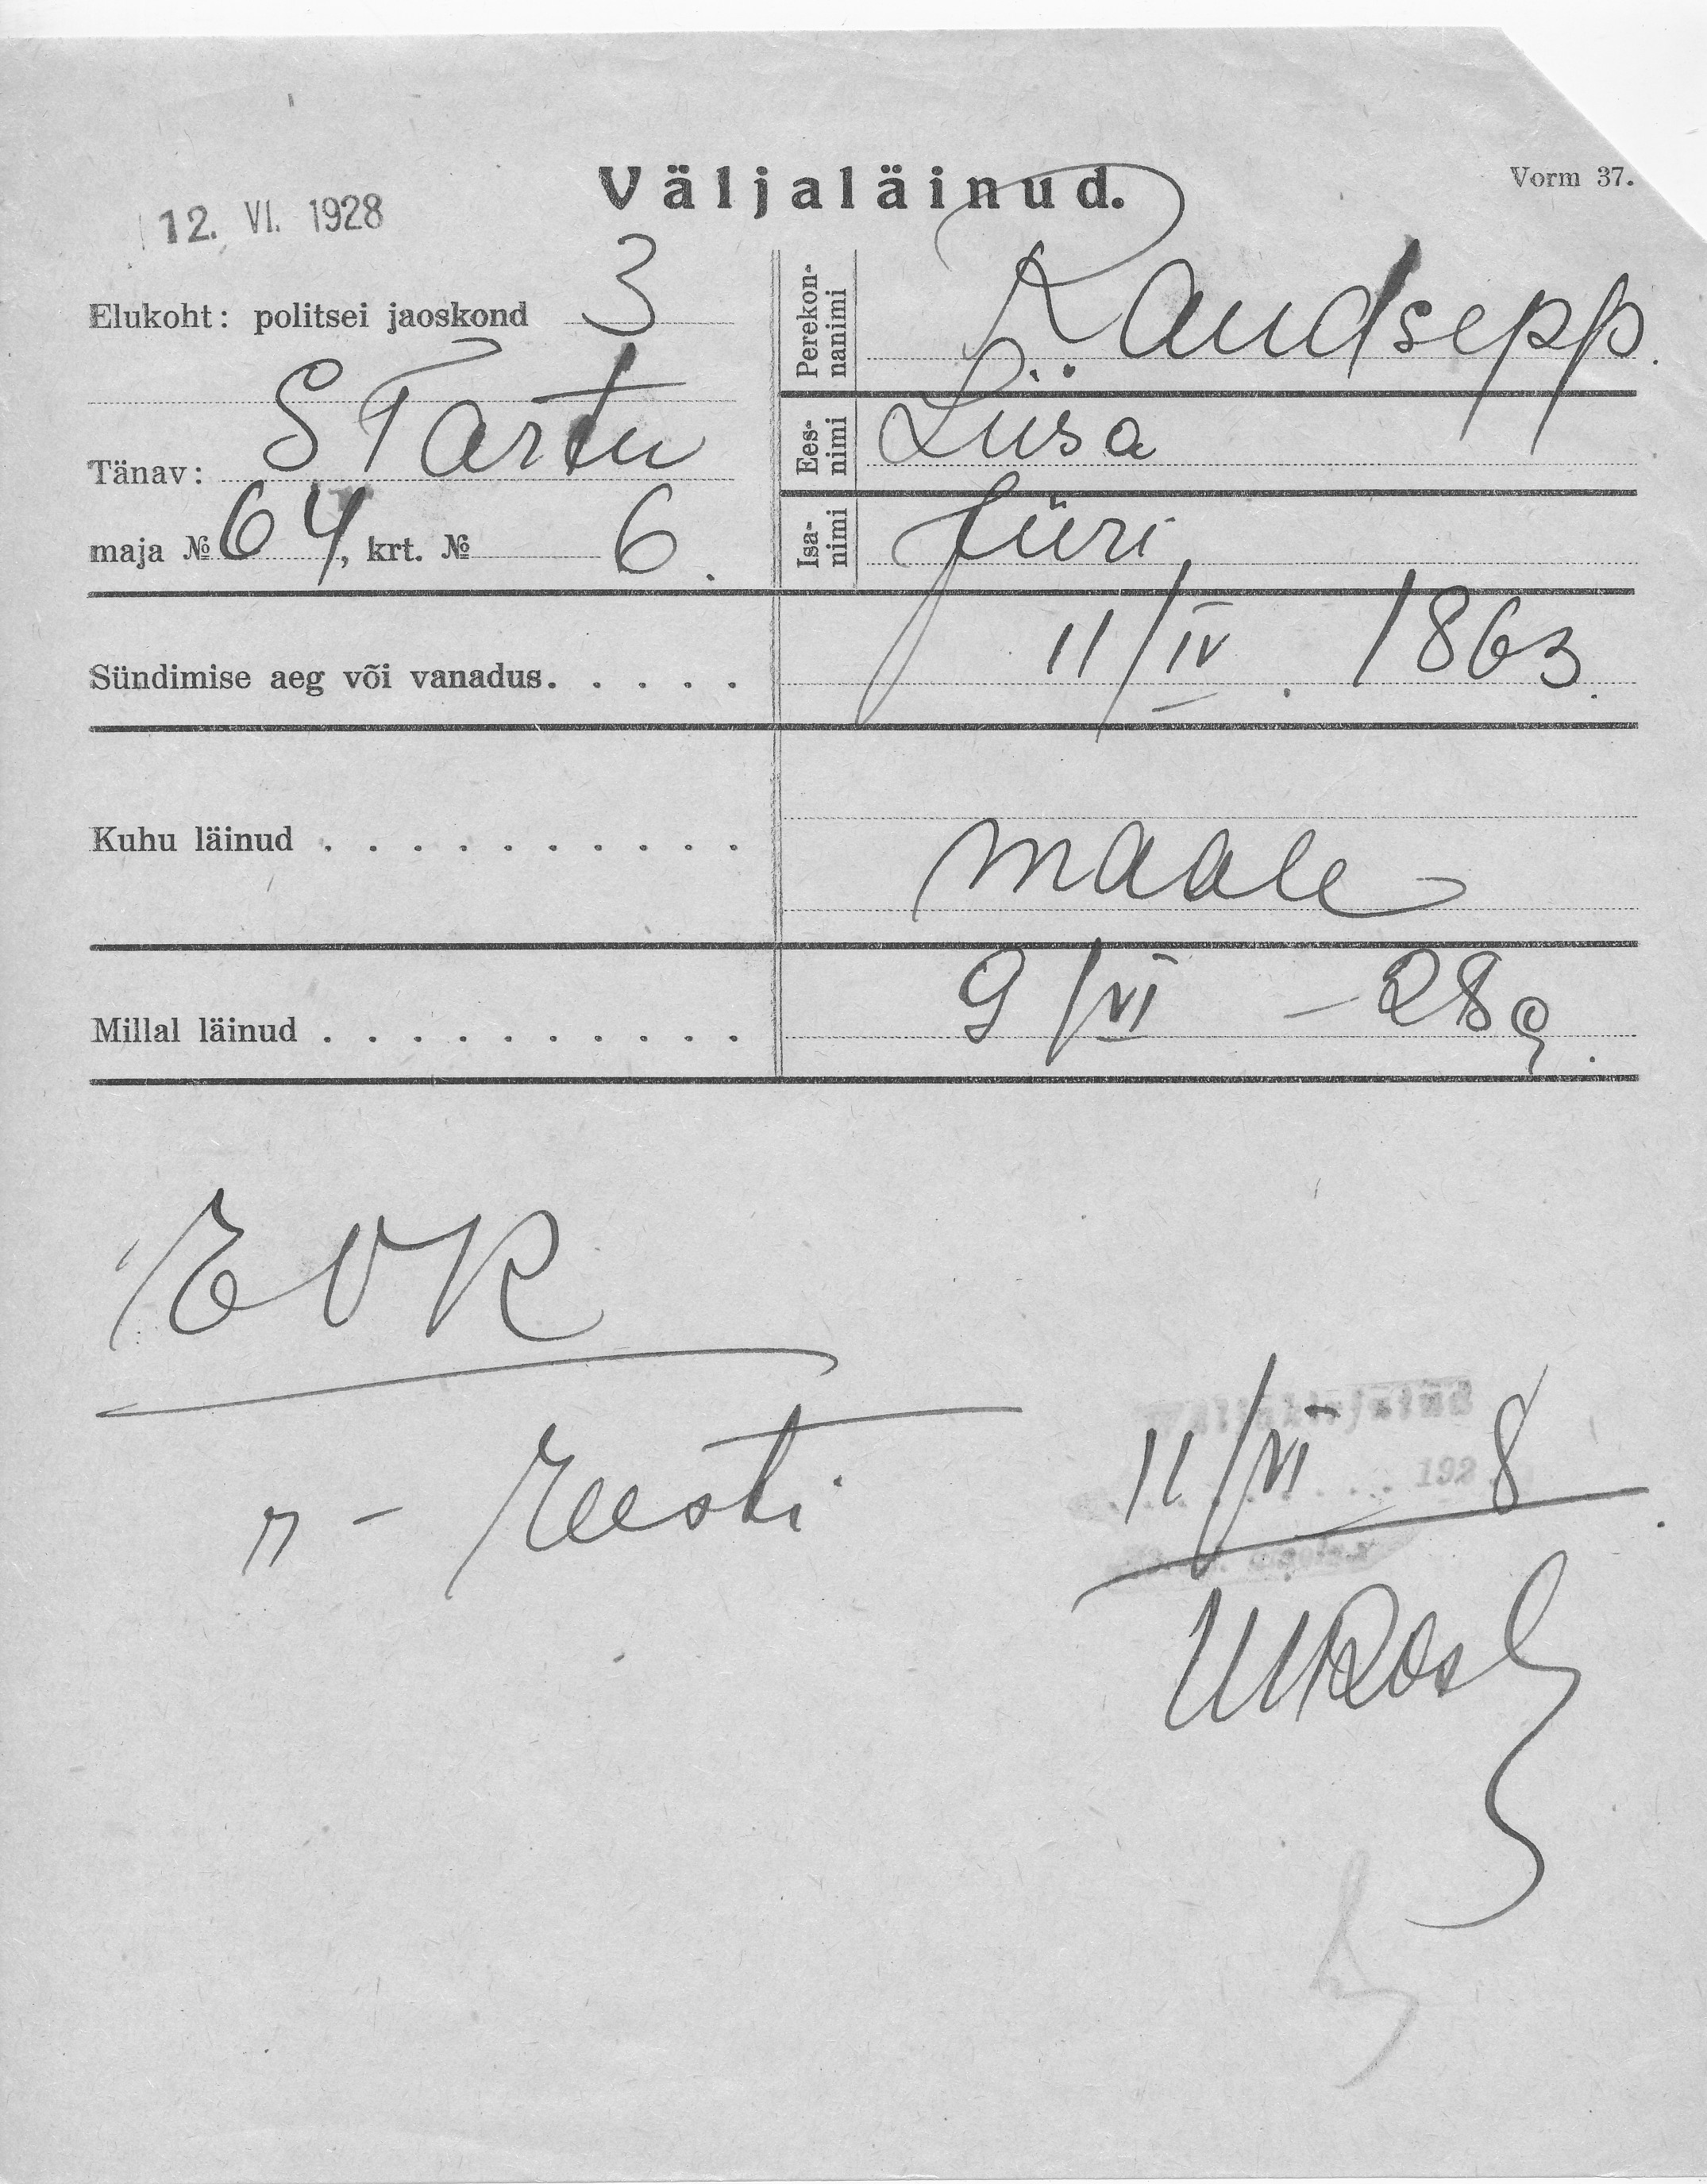 Väljaläinud.
Vorm 37.
12. VI. 1928
Elukoht: politsei jaoskond 3
S Tartu
Tänav:
maja № 64, krt. № 6.
Perekon-
nanimi
Raudsepp.
Ees-
nimi
Liisa
Isa-
nimi
Jüri
Sündimise aeg või vanadus. . . . . 11/IV. 1863.
Kuhu läinud . . . . . . . . . . maale
Millal läinud . . . . . . . . . . 9/VI – 28 g.
EVK
r - Eesti
11/VI 1928.